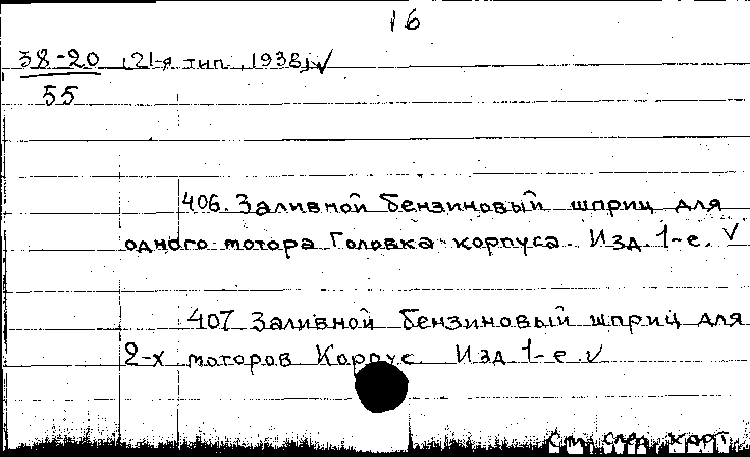 16
38-20 (21-я тип., 1938) √
55
406. Заливной бензиновый шприц для
одного мотора Головка корпуса. Изд. 1-е. √
407 Заливной бензиновый шприц для
2-х моторов Корпус. Изд 1-е √
См. след. карт.